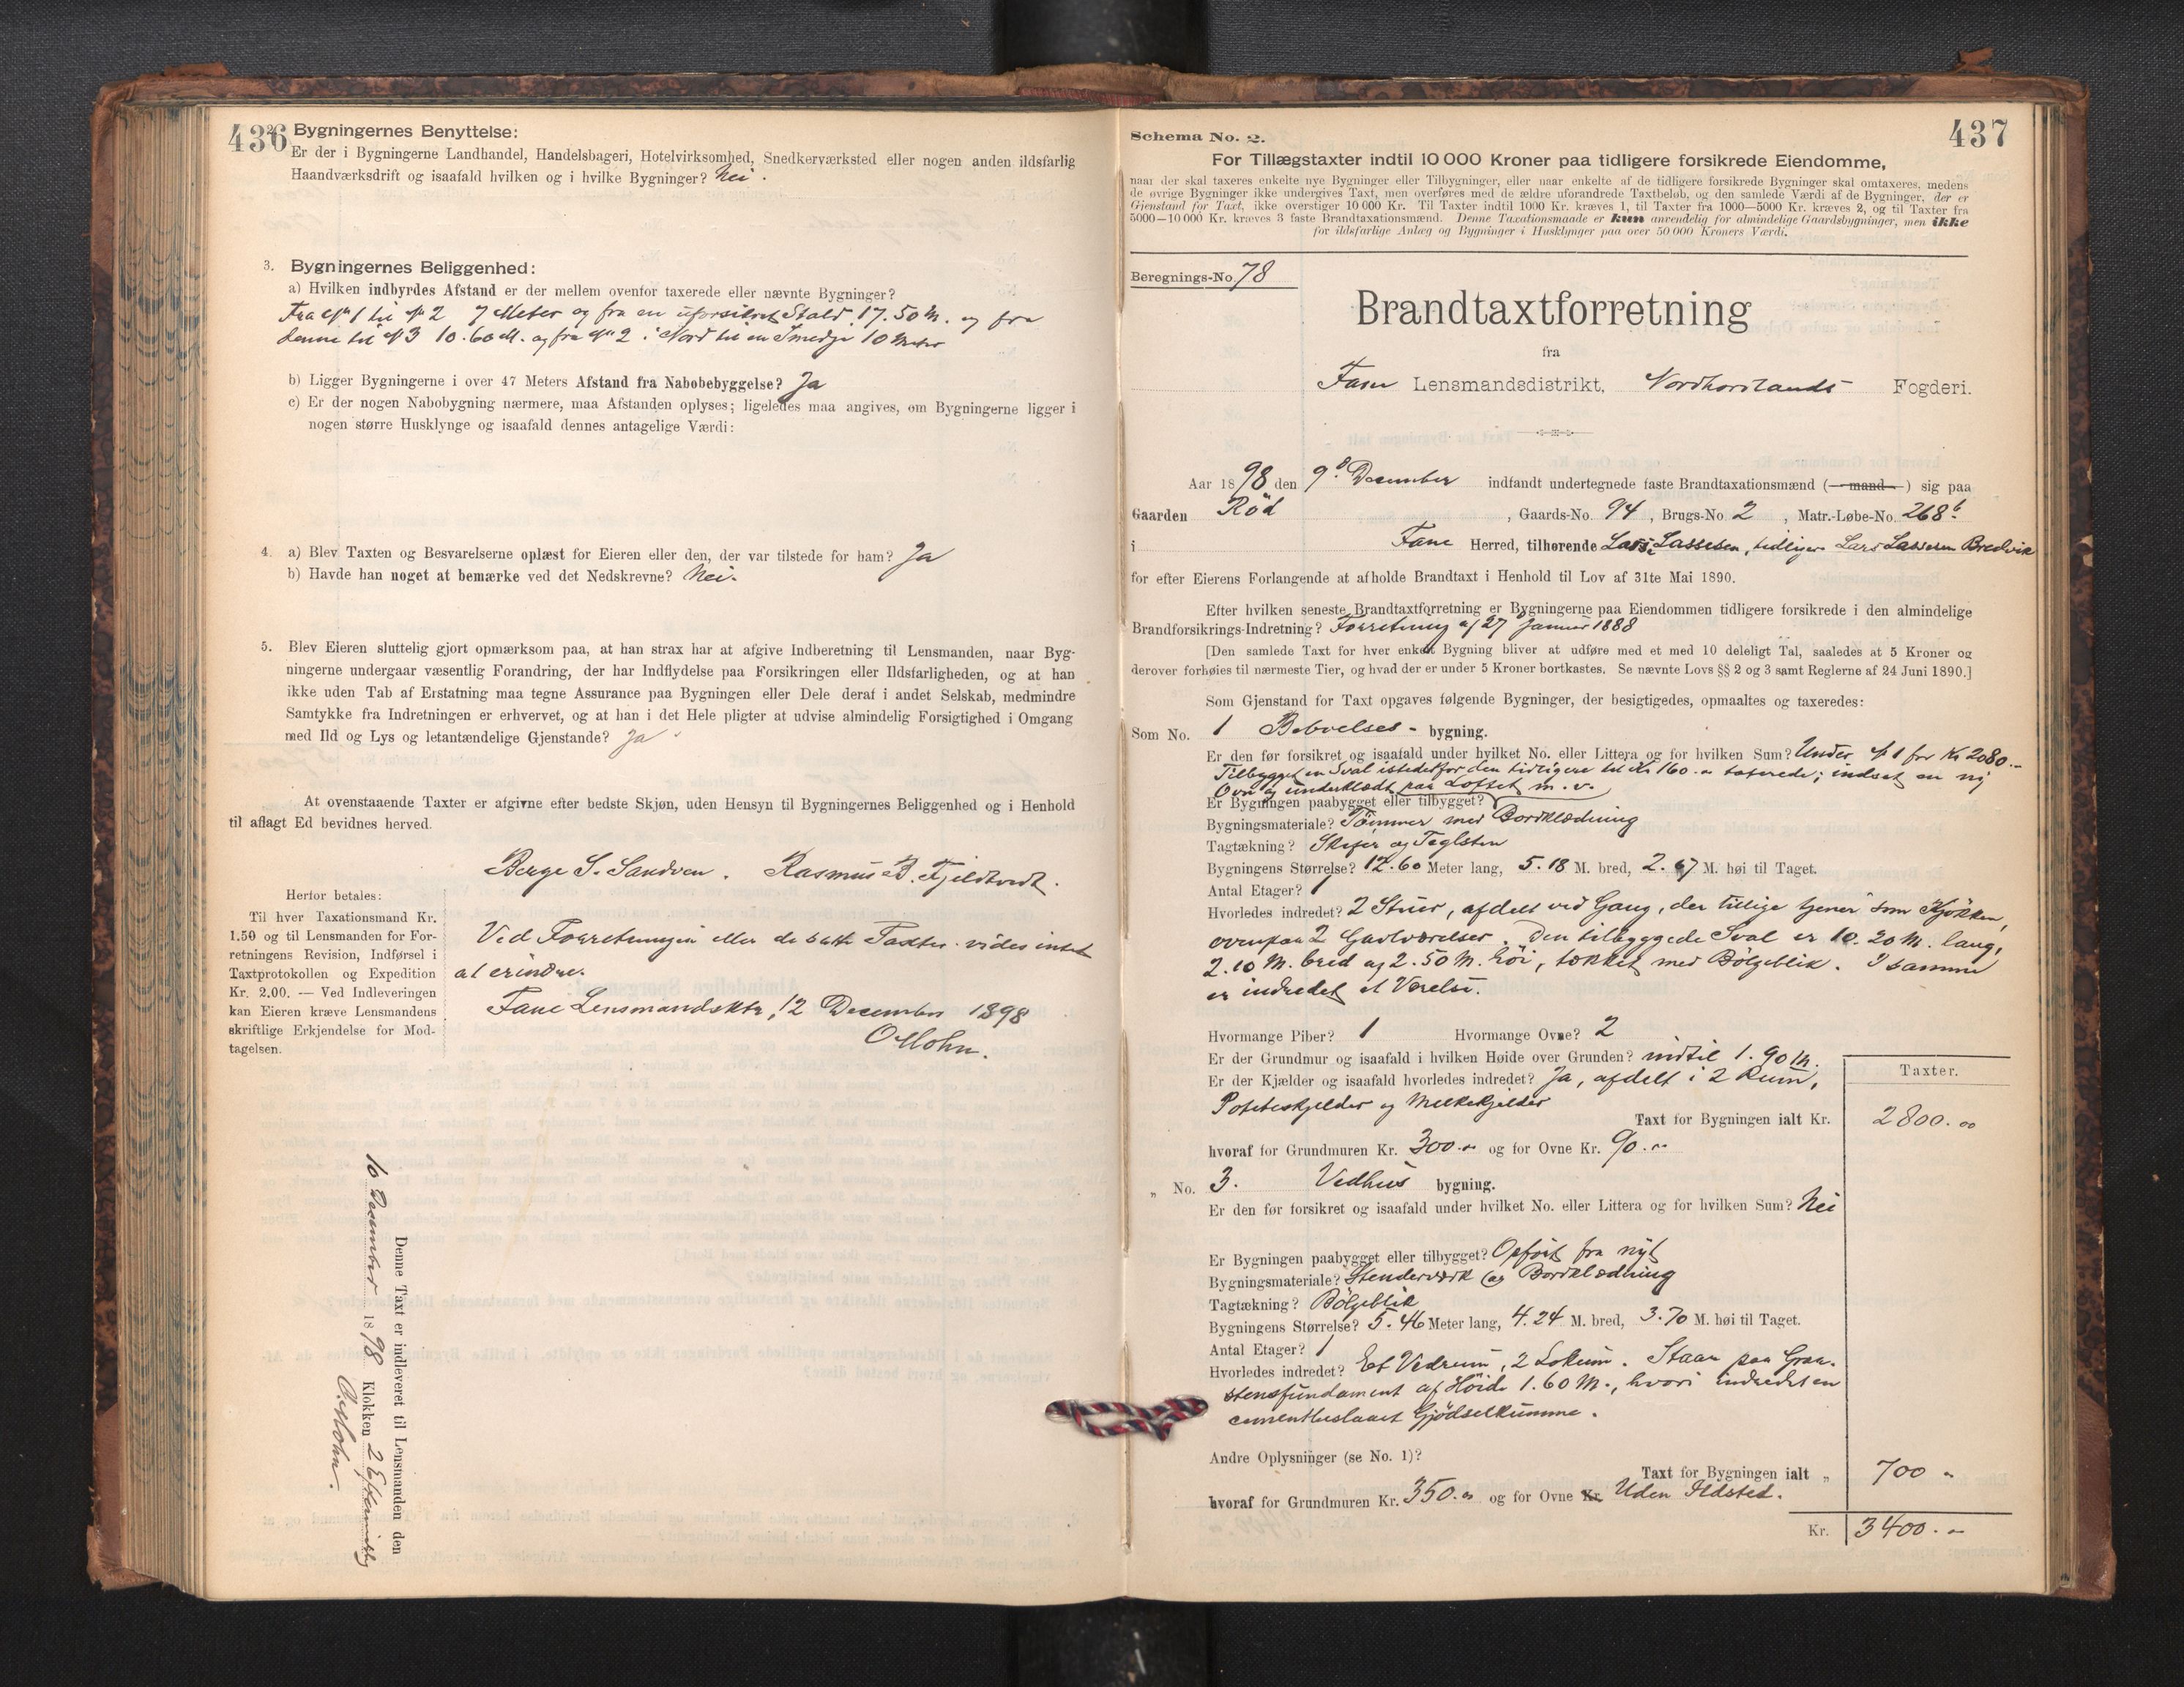 436
2. Bygningernes Benyttelse:
Er der i Bygningerne Landhandel, Handelsbageri, Hotelvirksomhed, Snedkerværksted eller nogen anden ildsfarlig
Haandværksdrift og isaafald hvilken og i hvilke Bygninger? Nei.
3. Bygningernes Beliggenhed:
a) Hvilken indbyrdes Afstand er der mellem ovenfor taxerede eller nævnte Bygninger?
Fra No 1 til No 2 7 Meter og fra en uforsikret Stald 17.50 M. og fra
denne til No 3 10.60 M. og fra No 2 i Nord til en Smedje 10 Meter
b) Ligger Bygningerne i over 47 Meters Afstand fra Nabobebyggelse? Ja
c) Er der nogen Nabobygning nærmere, maa Afstanden oplyses; ligeledes maa angives, om Bygningerne ligger i
nogen større Husklynge og isaafald dennes antagelige Værdi:
4. a) Blev Taxten og Besvarelserne oplæst for Eieren eller den, der var tilstede for ham? Ja
b) Havde han noget at bemærke ved det Nedskrevne? Nei.
5. Blev Eieren sluttelig gjort opmærksom paa, at han strax har at afgive Indberetning til Lensmanden, naar Byg-
ningerne undergaar væsentlig Forandring, der har Indflydelse paa Forsikringen eller Ildsfarligheden, og at han
ikke uden Tab af Erstatning maa tegne Assurance paa Bygningen eller Dele deraf i andet Selskab, medmindre
Samtykke fra Indretningen er erhvervet, og at han i det Hele pligter at udvise almindelig Forsigtighed i Omgang
med Ild og Lys og letantændelige Gjenstande? Ja
At ovenstaaende Taxter er afgivne efter bedste Skjøn, uden Hensyn til Bygningernes Beliggenhed og i Henhold
til aflagt Ed bevidnes herved.
Berge S. Sandven. Rasmus B. Fjeldtvedt.
Herfor betales:
Til hver Taxationsmand Kr.
1.50 og til Lensmanden for For-
retningens Revision, Indførsel i
Taxtprotokollen og Expedition
Kr. 2.00. — Ved Indleveringen
kan Eieren kræve Lensmandens
skriftlige Erkjendelse for Mod-
tagelsen.
Ved Forretningen eller de satte Taxter vides intet
at erindre.
Fane Lensmandsktr, 12 December 1898
O Mohn.
Denne Taxt er indleveret til Lensmanden den
10 December 1898 Klokken 2 Eftermiddag
O. Mohn.
437
Schema No. 2.
For Tillægstaxter indtil 10 000 Kroner paa tidligere forsikrede Eiendomme,
naar der skal taxeres enkelte nye Bygninger eller Tilbygninger, eller naar enkelte af de tidligere forsikrede Bygninger skal omtaxeres, medens
de øvrige Bygninger ikke undergives Taxt, men overføres med de ældre uforandrede Taxtbeløb, og den samlede Værdi af de Bygninger, der er
Gjenstand for Taxt, ikke overstiger 10 000 Kr. Til Taxter indtil 1000 Kr. kræves 1, til Taxter fra 1000—5000 Kr. kræves 2, og til Taxter fra
5000—10 000 Kr. kræves 3 faste Brandtaxationsmænd. Denne Taxationsmaade er kun anvendelig for almindelige Gaardsbygninger, men ikke
for ildsfarlige Anlæg og Bygninger i Husklynger paa over 50 000 Kroners Værdi.
Beregnings-No. 78
Brandtaxtforretning
fra
Fane Lensmandsdistrikt, Nordhordlands Fogderi.
Aar 1898 den 9d December indfandt undertegnede faste Brandtaxationsmænd (mand) sig paa
Gaarden Röd, Gaards-No. 94, Brugs-No 2, Matr.-Løbe-No. 268b
i Fane Herred, tilhørende Lars Lassesen, tidligere Lars Lassesen Bredvik
for efter Eierens Forlangende at afholde Brandtaxt i Henhold til Lov af 31te Mai 1890.
Efter hvilken seneste Brandtaxtforretning er Bygningerne paa Eiendommen tidligere forsikrede i den almindelige
Brandforsikrings-Indretning? Forretning af 27 Januar 1888
[Den samlede Taxt for hver enkelt Bygning bliver at udføre med et med 10 deleligt Tal, saaledes at 5 Kroner og
derover forhøies til nærmeste Tier, og hvad der er under 5 Kroner bortkastes. Se nævnte Lovs §§ 2 og 3 samt Reglerne af 24 Juni 1890.]
Som Gjenstand for Taxt opgaves følgende Bygninger, der besigtigedes, opmaaltes og taxeredes:
Som No. 1 Beboelses- bygning.
Er den før forsikret og isaafald under hvilket No. eller Littera og for hvilken Sum? Under No 1 for Kr 2080.-
Tilbygget en Sval istedetfor den tidligere til Kr 160.- taxerede; indsat en ny
Ovn og underklædt paa Loftet m. v.
Er Bygningen paabygget eller tilbygget?
Bygningsmateriale? Tömmer med Bordklædning
Tagtækning? Skifer og Teglsten
Bygningens Størrelse? 12.60 Meter lang, 5.18 M. bred, 2.67 M. høi til Taget.
Antal Etager? 1
Hvorledes indredet? 2 Stuer, afdelt ved Gang, der tillige tjener som Kjökken,
ovenpaa 2 Gavlværelser. Den tilbyggede Sval er 10.20 M. lang,
2.10 M. bred og 2.50 M. höi, tækket med Bölgeblik. I samme
er indredet et Værelse.
Hvormange Piber? 1 Hvormange Ovne? 2
Er der Grundmur og isaafald i hvilken Høide over Grunden? indtil 1.90 M.
Er der Kjælder og isaafald hvorledes indredet? Ja, afdelt i 2 Rum,
Poteteskjelder og Melkekjelder
Taxter.
Taxt for Bygningen ialt Kr. 2800.00
hvoraf for Grundmuren Kr. 300.00 og for Ovne Kr. 90.00
„ No. 3. Vedhus bygning.
Er den før forsikret og isaafald under hvilket No. eller Littera og for hvilken Sum? Nei
Er Bygningen paabygget eller tilbygget? Opfört fra nyt
Bygningsmateriale? Stenderværk og Bordklædning
Tagtækning? Bölgeblik
Bygningens Størrelse? 5.46 Meter lang, 4.24 M. bred, 3.70 M. høi til Taget.
Antal Etager? 1
Hvorledes indredet? Et Vedrum, 2 Lokum. Staar paa Graa-
stensfundament af Höide 1.60 M., hvori indredet en
cementbeslaaet Gjödselkumme.
Andre Oplysninger (se No. 1)?
Taxt for Bygningen ialt „ 700 -
hvoraf for Grundmuren Kr. 350.00 og for Ovne Kr. Uden Ildsted.
Kr. 3400.-